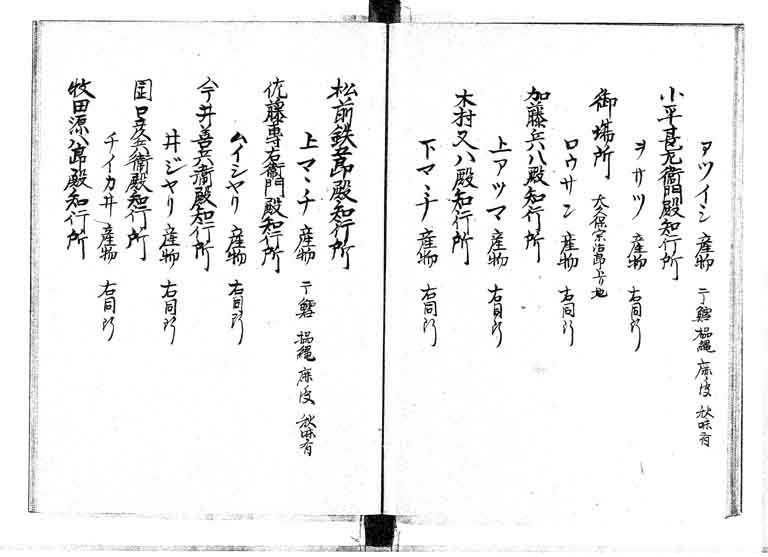 ヲツイシ 産物 干鱈 縄 鹿皮 秋味有
小平甚左衛門殿知行所
ヲサツ 産物 右同断
御場所
ロウサン 産物 右同断
加藤兵八殿知行所
上アツマ 産物 右同断
木村又八殿知行所
下マヽチ 産物 右同断
松前鉄五郎殿知行所
上マヽチ 産物 干鱈 縄 鹿皮 秋味有
佐藤専右衛門殿知行所
ムイシヤリ 産物 右同断
今井善兵衛殿知行所
井ジヤリ 産物 右同断
殿知行所
チイカ井 産物 右同断
牧田源八郎殿知行所